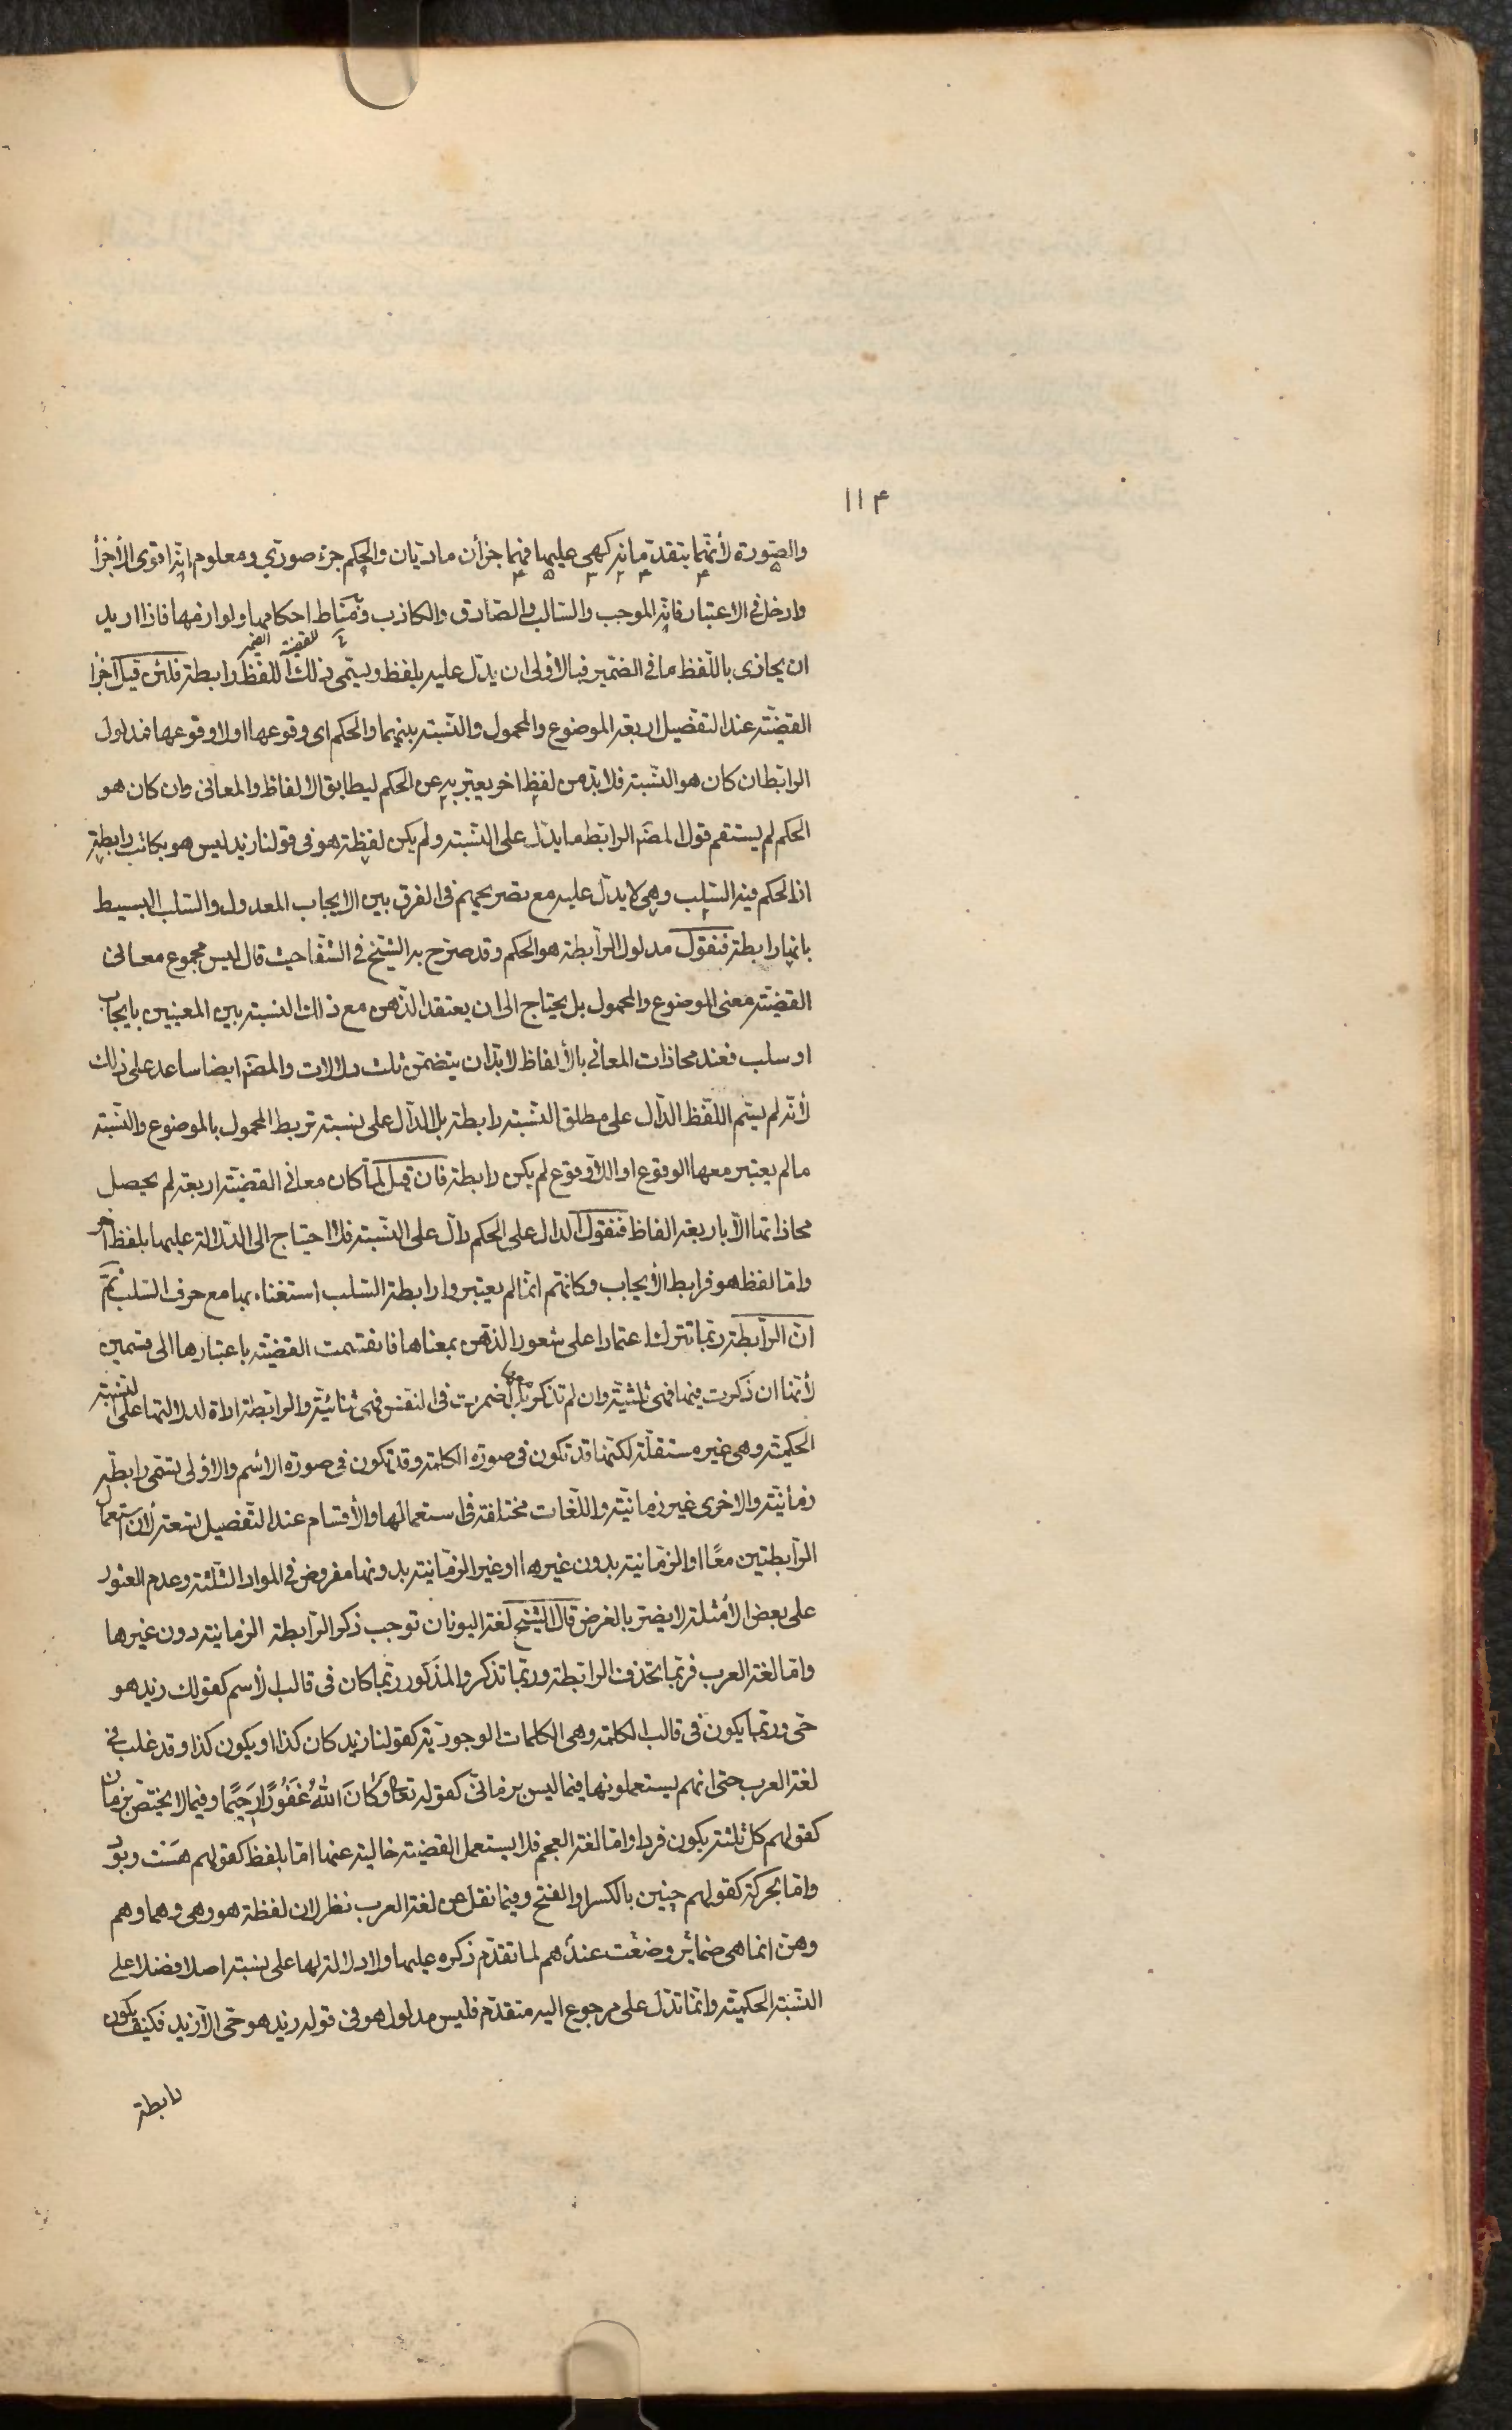 ١١٤
والصورة لأنهما بتقدمانه كهى عليها فهما جزأن ماديان والحكم جزء صوري ومعلوم انه اقوى الأجزأ
وادخل فى الاعتبار فانه الموجب والسالب والصادق والكاذب ومناط احكامها ولوازمها فاذا اريد
للقضية
ان يحاذى باللفظ ما فى الضمير فبالاولى ان يدل عليه بلفظ ويسمى ذلك اللفظ رابطة فلئن قيل اجزأ
القضية عند التفصيل اربعة الموضوع والمحمول والنسبة بينهما والحكم اى وقوعها اولا وقوعها فمدلول
الرابط ان كان هو النسبة فلابد من لفظ اخر يعتبر به عن الحكم ليطابق الالفاظ والمعانى وان كان هو
الحكم لم يستقم قول المصنّ الرابط ما يدل على النسبة ولم يكن لفظة هو فى قولنا زيد ليس هو بكاتب رابطة
اذ الحكم فيه السلب وهى لا يدل عليه مع تصريحهم فى الفرق بين الايجاب المعدول والسلب البسيط
بانها رابطة فنقول مدلول الرابطة هو الحكم وقد صرح به الشيخ فى الشفا حيث قال ليس مجموع معانى
القضية معنى الموضوع والمحمول بل يحتاج الى ان يعتقد الذهن مع ذلك النسبة بين المعنيين بايجاب
او سلب فعند محاذات المعانى بالألفاظ لابد ان يتضمن ثلث دلالات والمصنّ ايضا ساعد على ذلك
لأنه لم يسم اللفظ الدال على مطلق النسبة رابطة بل الدال على نسبة تربط المحمول بالموضوع والنسبة
مالم يعتبر معها الوقوع او اللاوقوع لم يكن رابطة فان قيل لما كان معانى القضية اربعة لم يحصل
محاذاتها الا باربعة الفاظ فنقول الدال على الحكم دال على النسبة فلا احتياج الى الدلالة عليها بلفظ اخر
واما لفظ هو فرابط الأيجاب وكانهم انما لم يعتبروا رابطة السلب استغناء بها مع حرف السلب ثم
ان الرابطة ربما تترك اعتمادا على شعور الذهن بمعناها فانقسمت القضية باعتبارها الى قسمين
لأنها ان ذكرت فيها فهى ثلثية وان لم تذكر بل اضمرت فى النفس فهى ثنائية والرابطة اداة لدلالتها على النسبة
الحكمية وهى غير مستقلة لكنها قد تكون فى صورة الكلمة وقد تكون فى صورة الاسم والاولى تسمى رابطة
زمانية والاخرى غير زمانية واللغات مختلفة فى استعمالها والأقسام عند التفصيل تسعة لأن استعمال
الرابطتين معًا او الزمانية بدون غيرها او غير الزمانية بدونها مفروض فى المواد الثلثة وعدم العثور
على بعض الأمثلة لا يضر بالغرض قال الشيخ لغة اليونان توجب ذكر الرابطة الزمانية دون غيرها
واما لغة العرب فربما تحذف الرابطة وربما تذكر والمذكور ربما كان فى قالب الأسم كقولك زيد هو
حى وربما يكون فى قالب الكلمة وهى الكلمات الوجودية كقولنا زيد كان كذا او يكون كذا وقد غلب فى
لغة العرب حتى انهم يستعملونها فيما ليس بزمانى كقوله تعا وَكَانَ اللهُ غَفُورًا رَحِيمًا وفيما لا يختص بزمان
كقولهم كل ثلثة يكون فردا واما لغة العجم فلا يستعمل القضية خالية عنها اما بلفظ كقولهم هست وبود
واما بحركة كقولهم چنين بالكسر او الفتح وفيما نقل عن لغة العرب نظر لان لفظة هو وهى وهما وهم
وهن انما هى ضمائر وضعت عندهم لما تقدم ذكره عليها ولا دلالة لها على نسبة اصلا فضلا على
النسبة الحكمية وانما تدل على مرجوع اليه متقدم فليس مدلول هو فى قوله زيد هو حى الا زيد فكيف يكون
رابطة